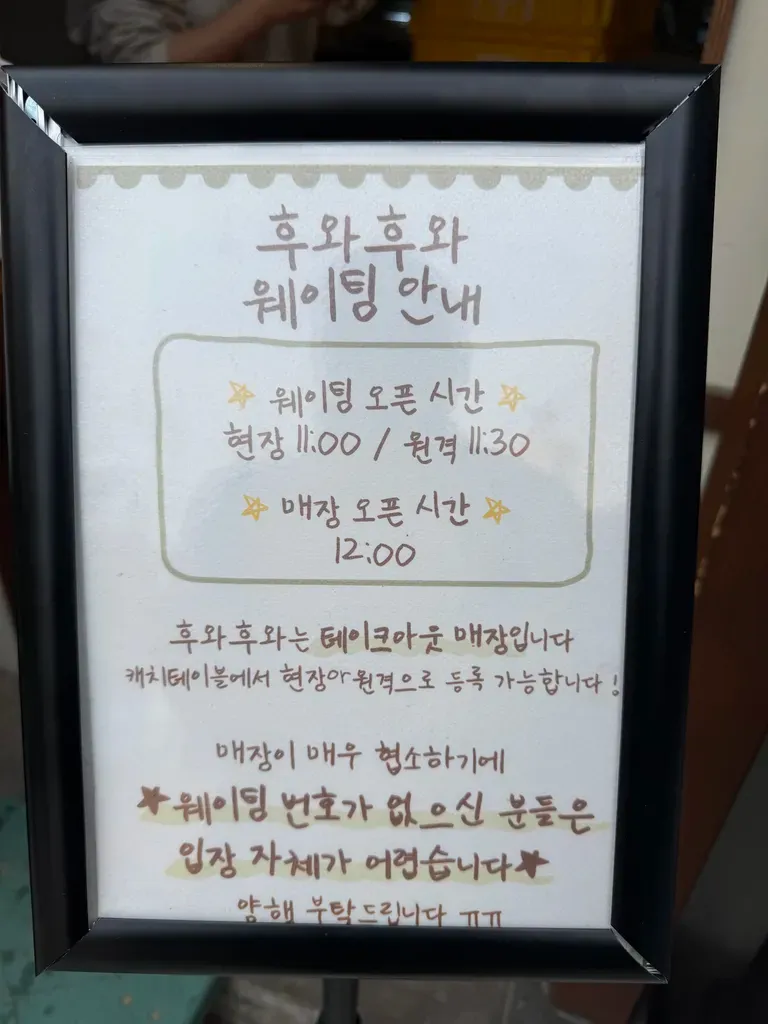 후와후와
웨이팅 안내
웨이팅 오픈 시간
현장 11:00 / 원격 11:30
매장 오픈 시간
12:00
후와후와는 테이크아웃 매장입니다
캐치테이블에서 현장or원격으로 등록 가능합니다!
매장이 매우 협소하기에
★웨이팅 번호가 없으신 분들은
입장 자체가 어렵습니다★
양해 부탁드립니다 ㅠㅠ